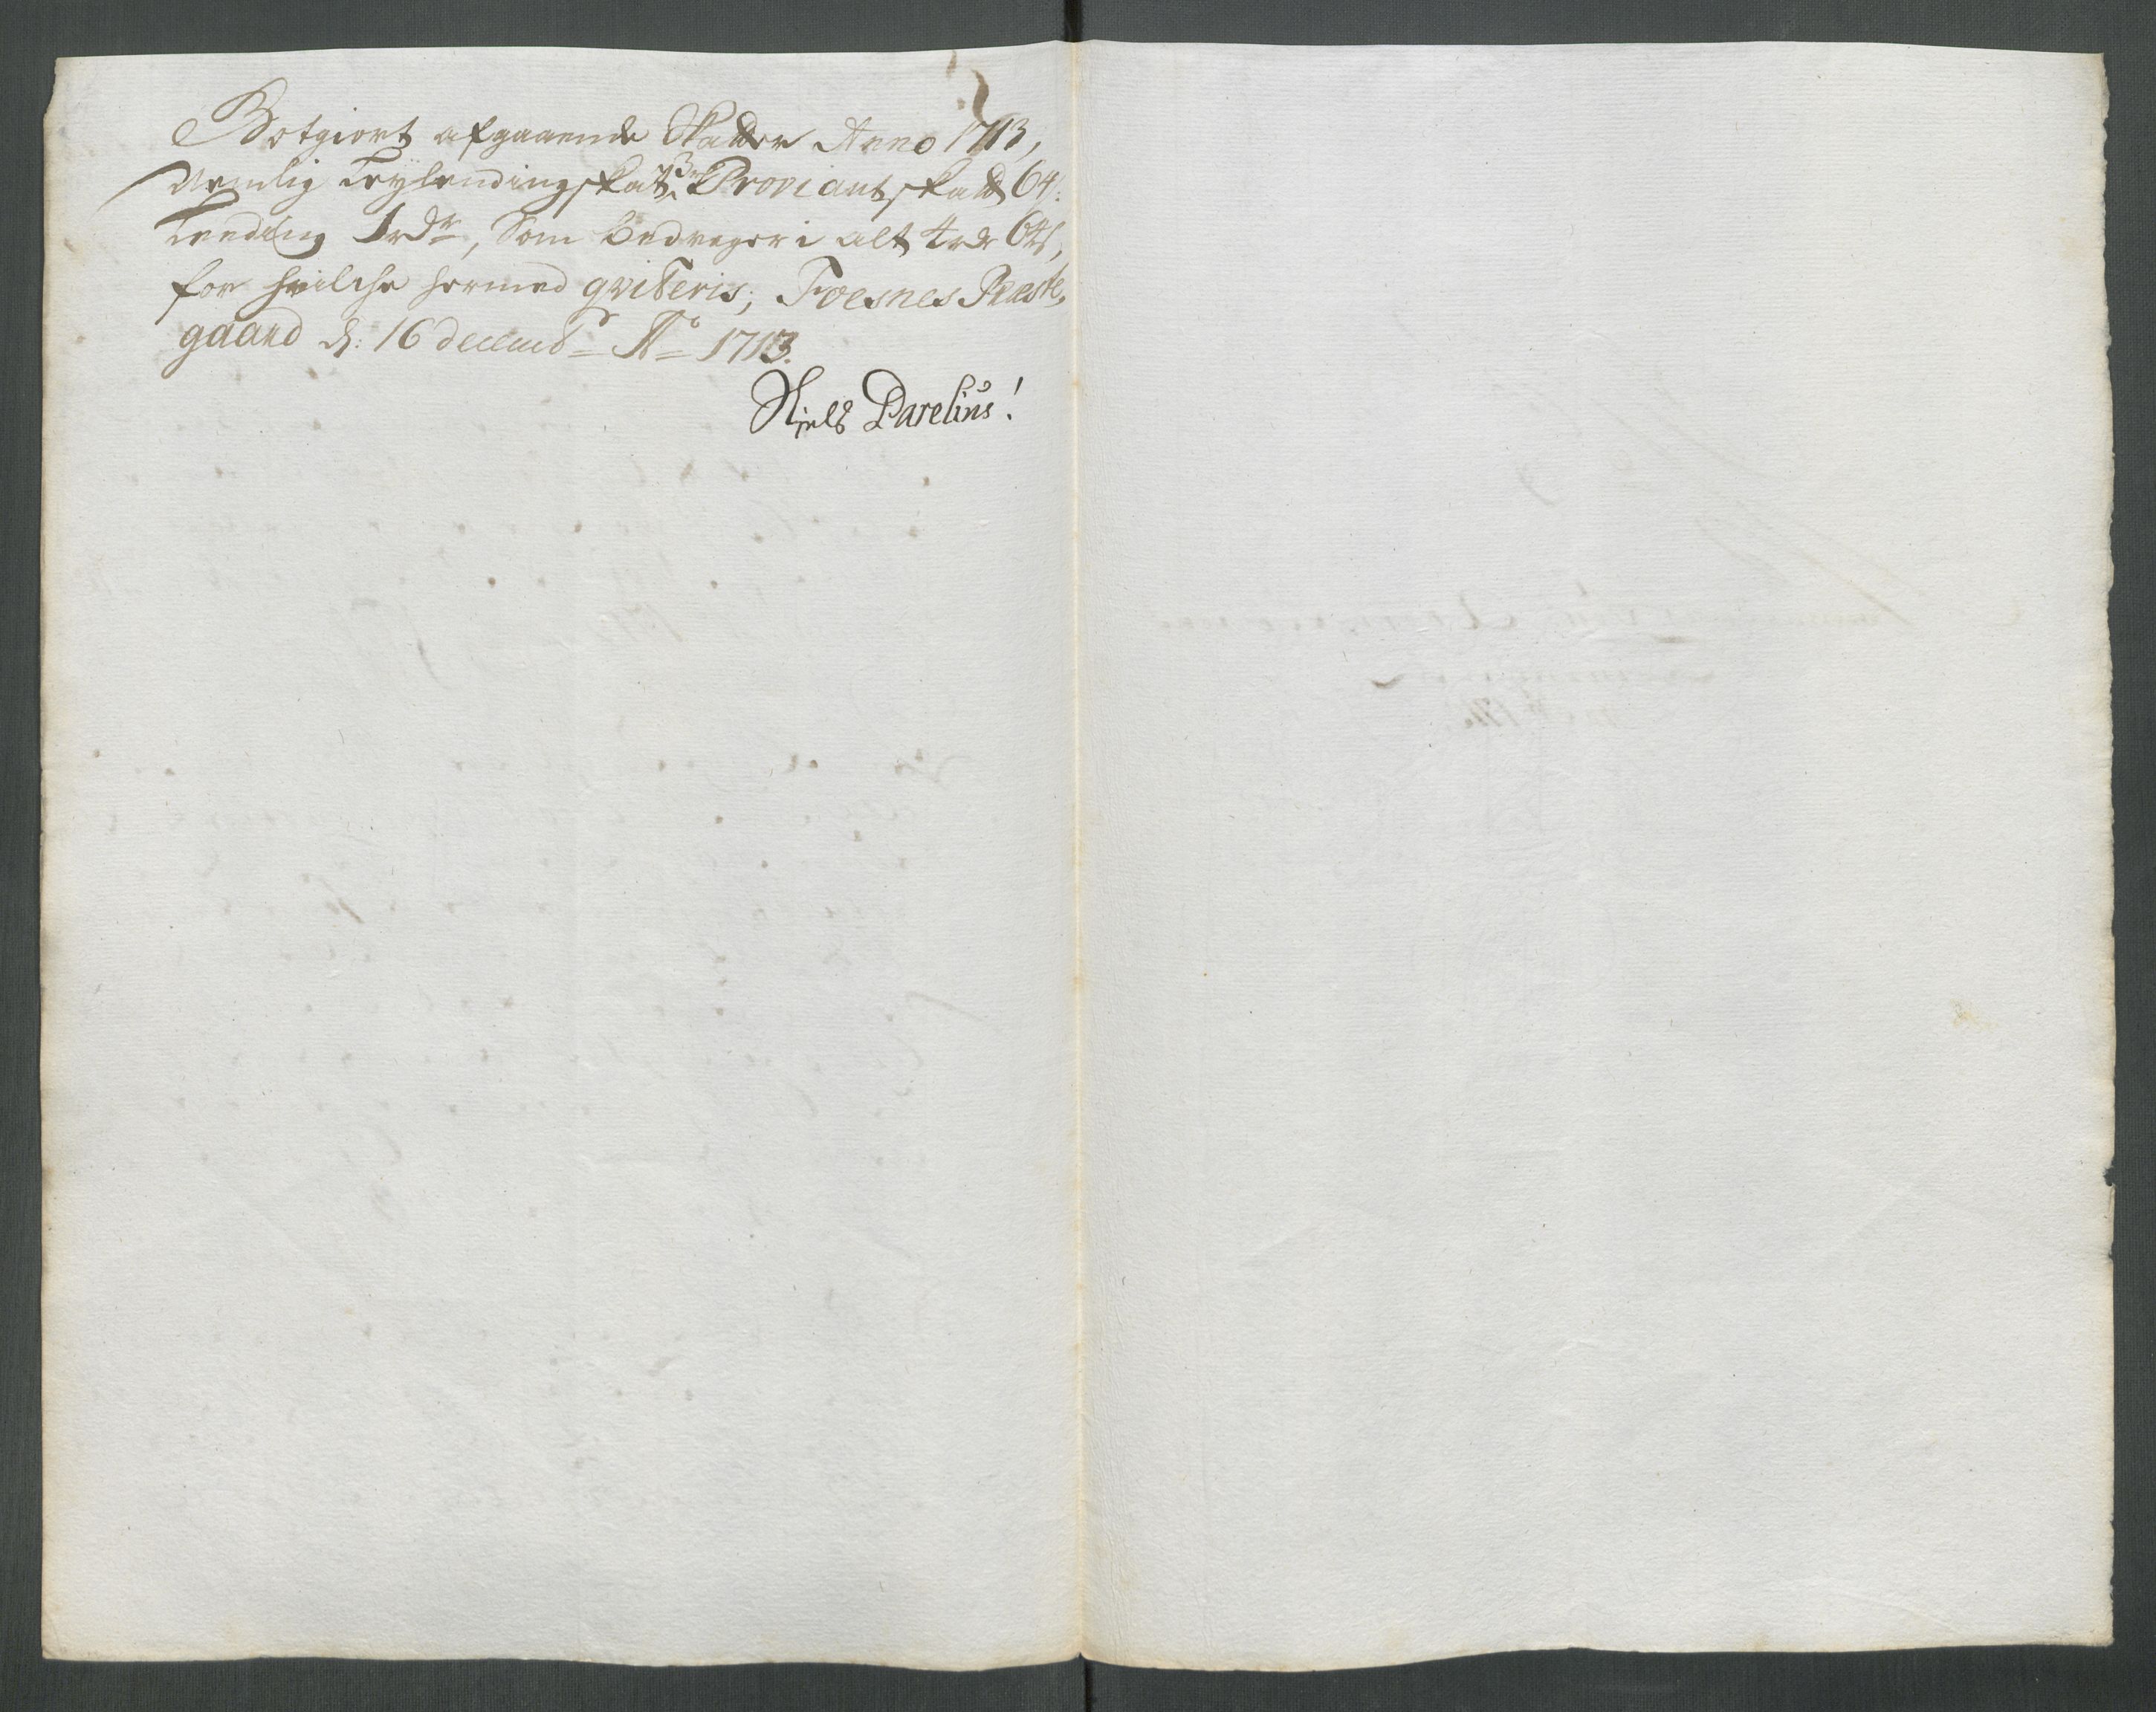 Botgiort afgaaende Skatter Anno 1713,
Nemlig Leylendingskat 3 Proviantskatt 64s:
Lending 1 rdr, Som bedrager i alt 4 rdr 64s,
for hvilche hermed qviteris; Foesnes Præste,
gaard d: 16 decemb: Ao 1713.
Niels Parelius!